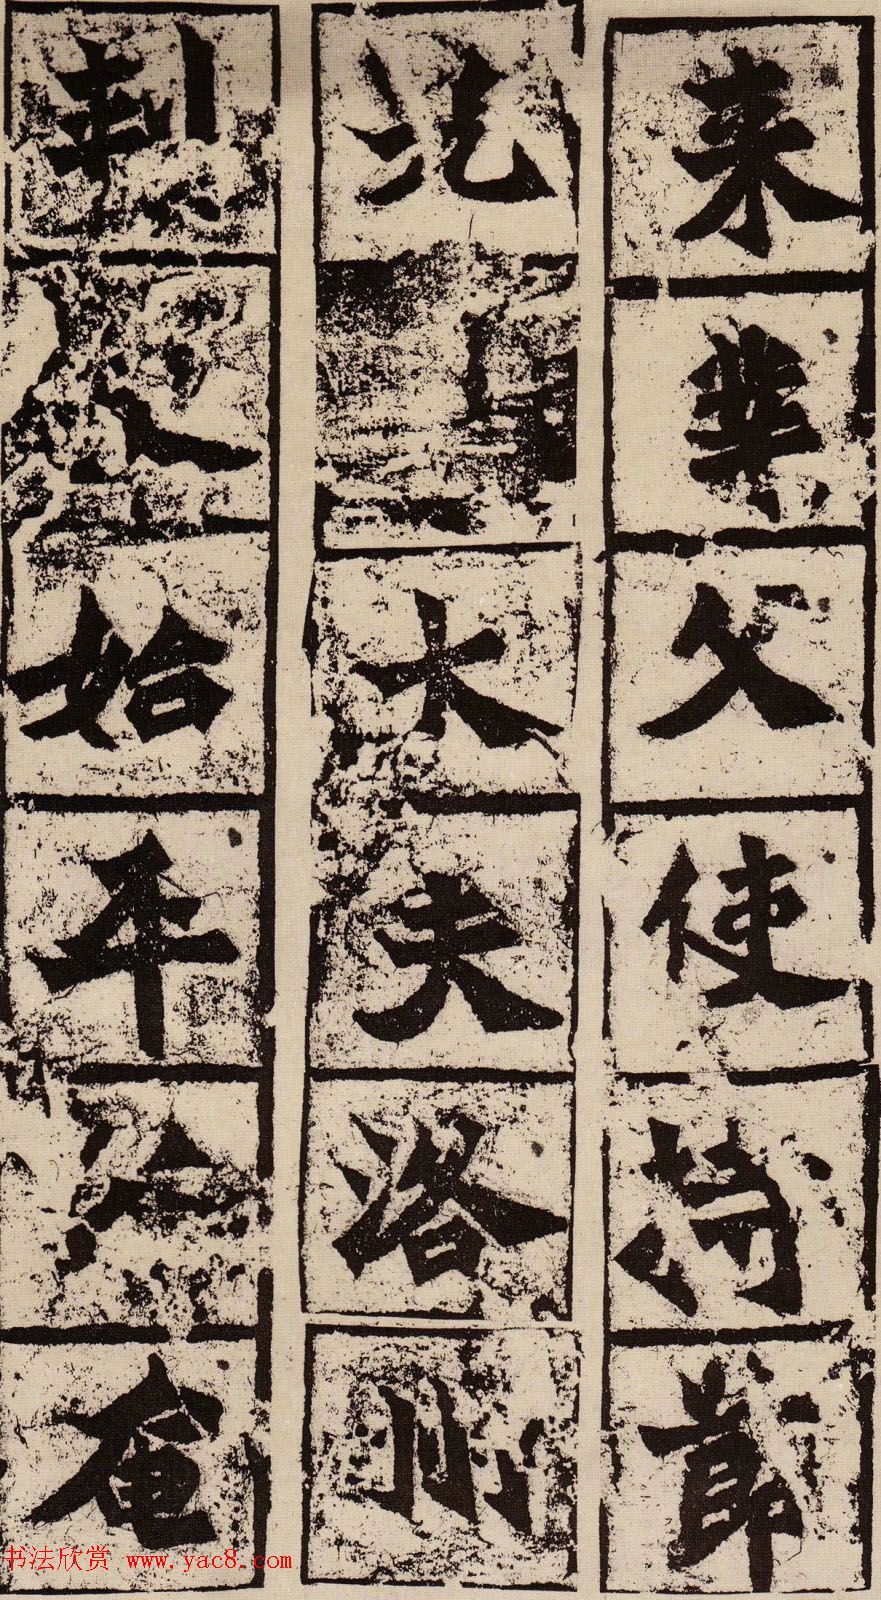 来業父使持節
光大夫洛州
刺史始平公奄
书法欣赏 www.yac8.com